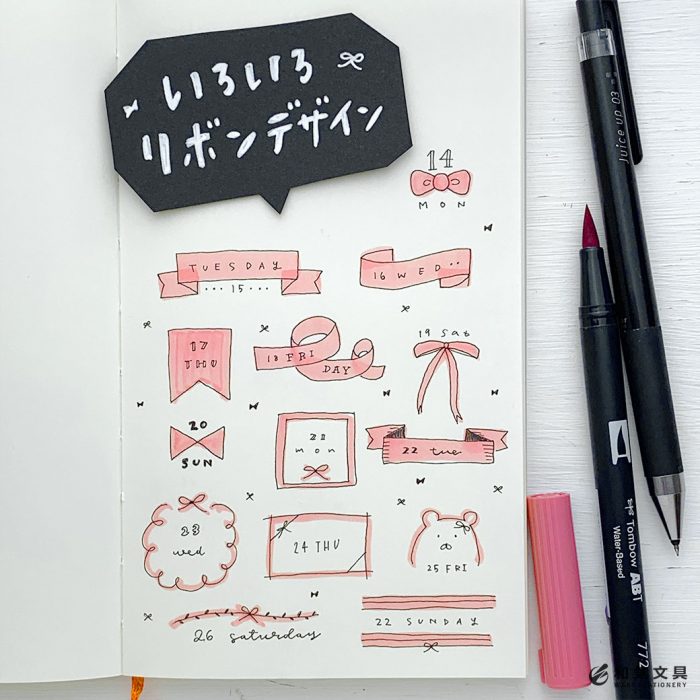 いろいろ
リボンデザイン
14
MON
TUESDAY
15
16 WED
17
THU
18 FRI
DAY
19 Sat
20
SUN
21
mon
22 tue
23
wed
24 THU
25 FRI
26 saturday
22 SUNDAY
Juice up 03
Tombow ABT
Water-Based
772
文具
STATIONERY